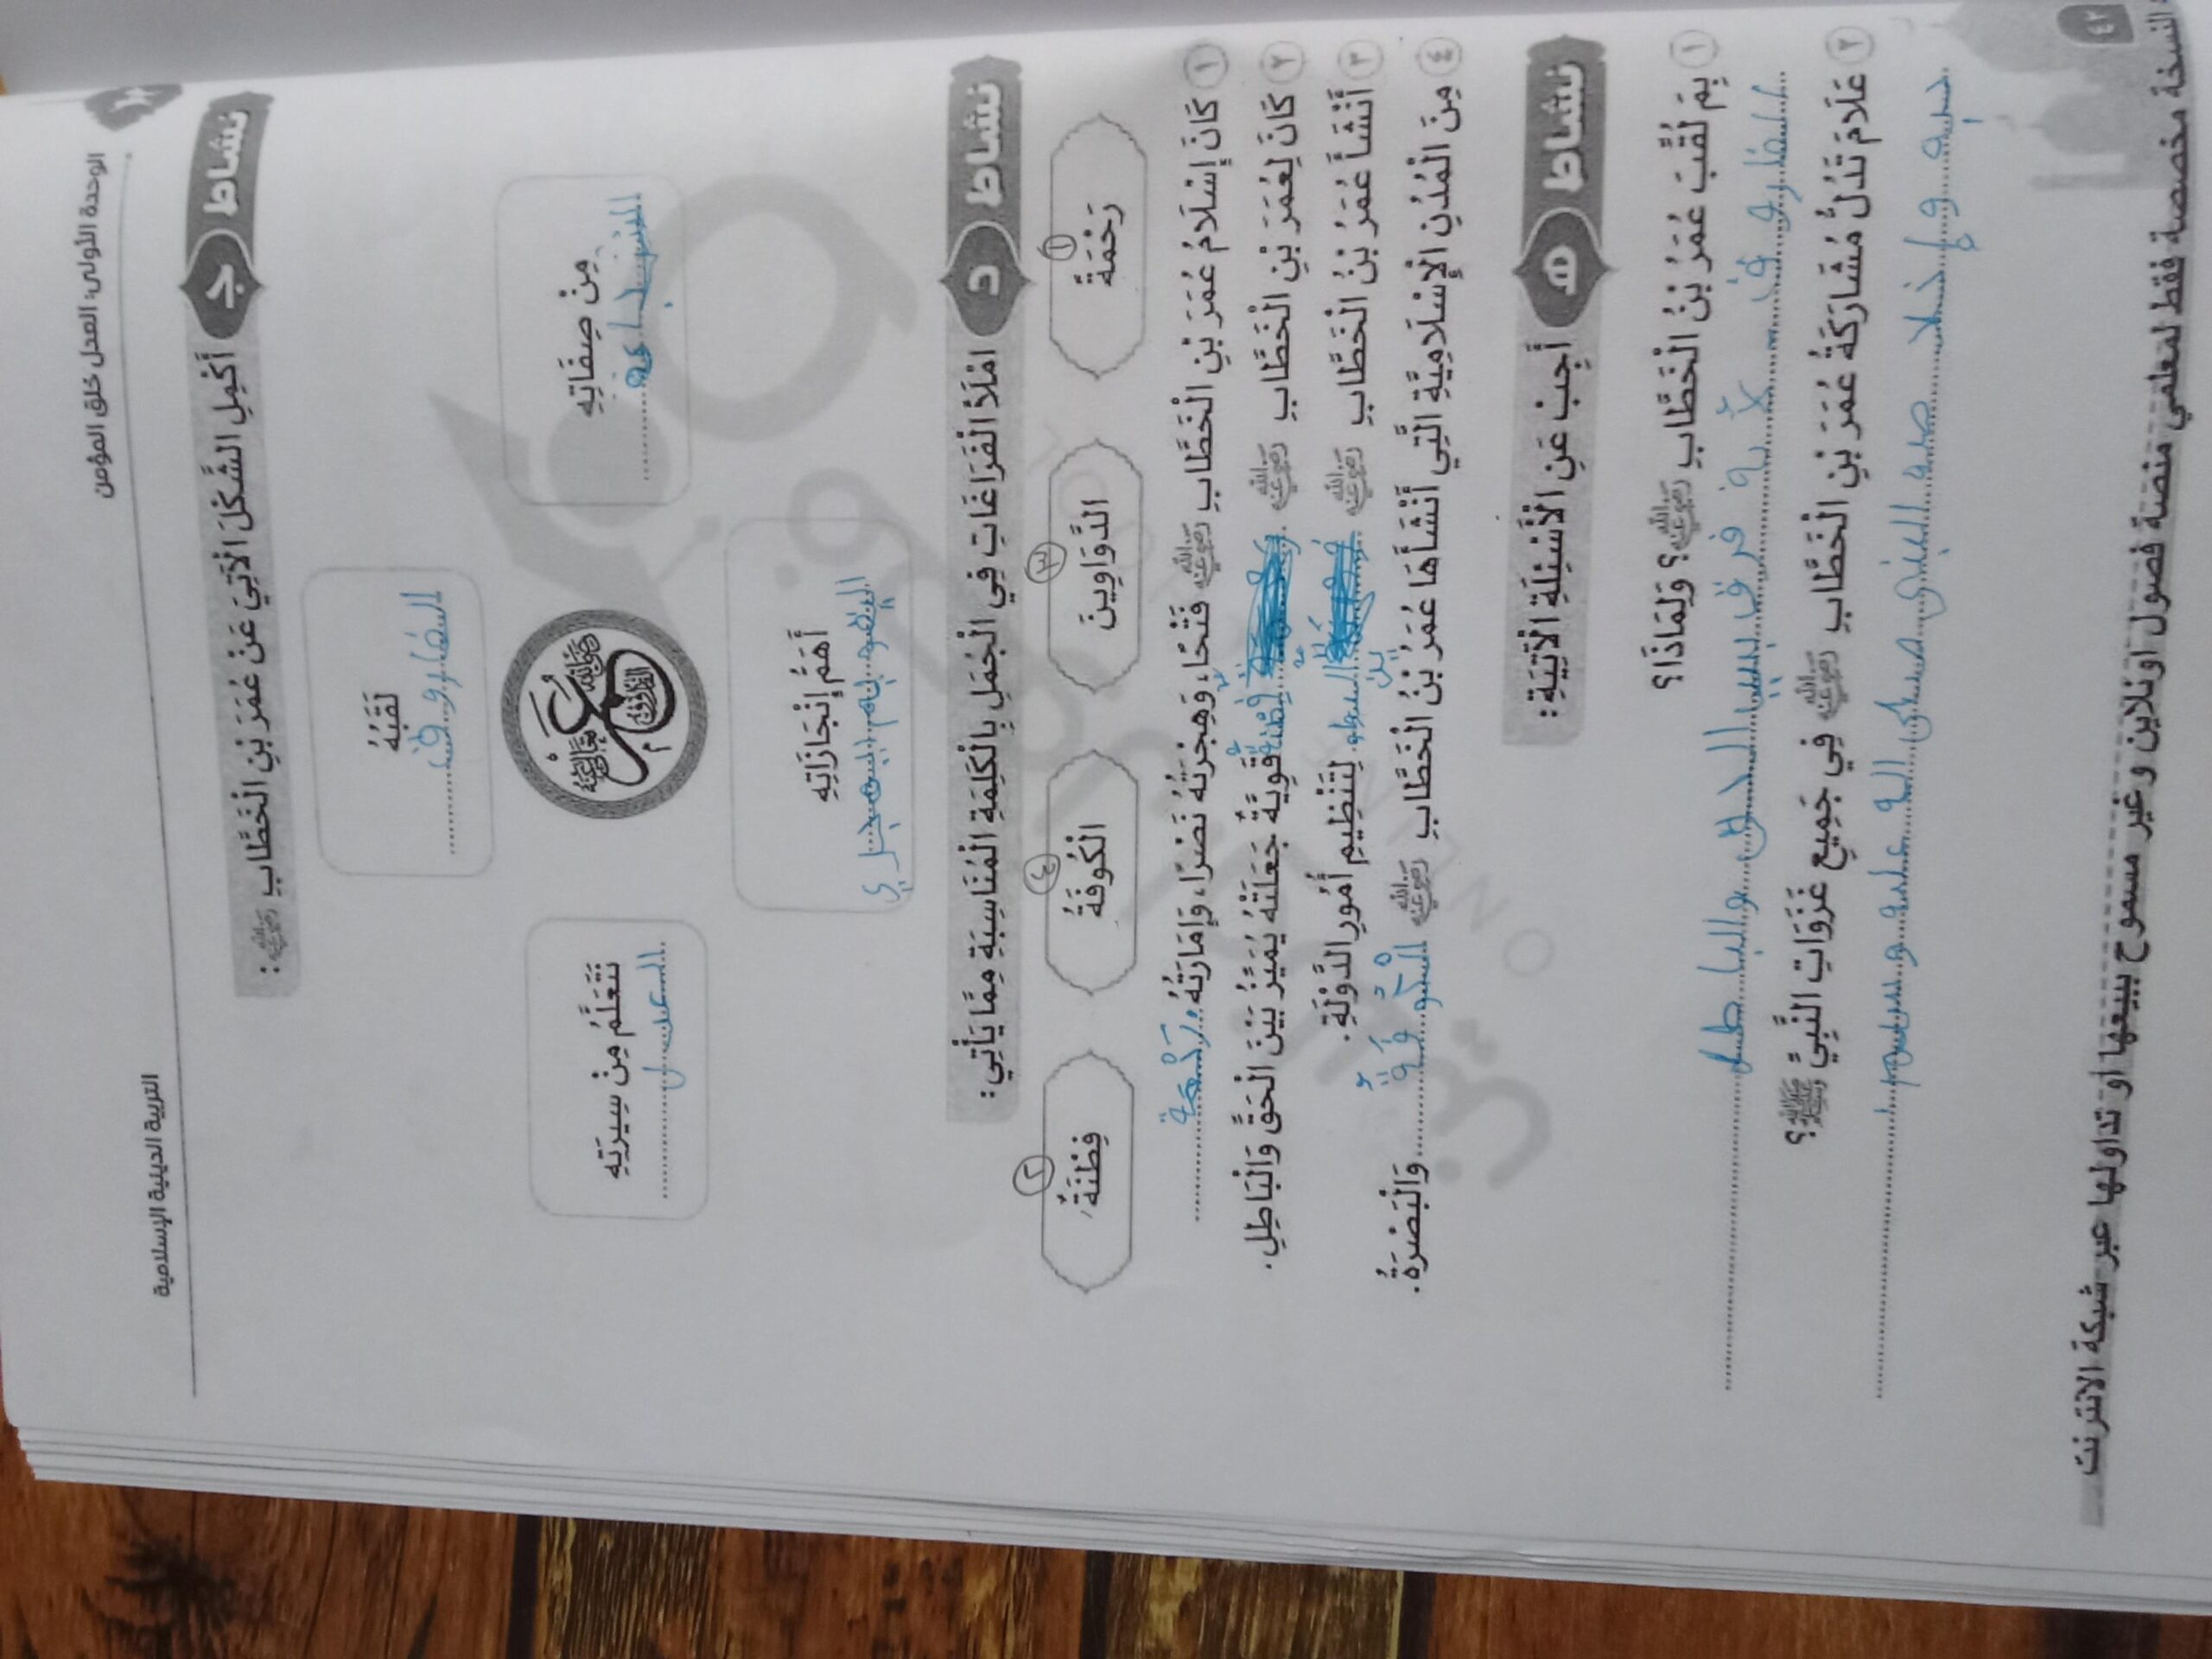 الوحدة الأولى: العدل خلق المؤمن
التربية الدينية الإسلامية
نشاط ج أَكْمِلِ الشَّكْلَ الْآتِيَ عَنْ عُمَرَ بْنِ الْخَطَّابِ رضي الله عنه :
لَقَبُهُ
الفاروق
مِنْ صِفَاتِهِ
الشجاعة
نَتَعَلَّمُ مِنْ سِيرَتِهِ
العدل
أَهَمُّ إِنْجَازَاتِهِ
التقويم الهجري
نشاط د امْلَأِ الْفَرَاغَاتِ فِي الْجُمَلِ بِالْكَلِمَةِ الْمُنَاسِبَةِ مِمَّا يَأْتِي:
١ ٣ ٤ ٢
رَحْمَةً الدَّوَاوِينَ الْكُوفَةُ فِطْنَةٌ
١ كَانَ إِسْلَامُ عُمَرَ بْنِ الْخَطَّابِ رضي الله عنه فَتْحًا، وَهِجْرَتُهُ نَصْرًا، وَإِمَارَتُهُ رَحْمة
٢ كَانَ لِعُمَرَ بْنِ الْخَطَّابِ رضي الله عنه فِطنةٌ قَوِيَّةٌ جَعَلَتْهُ يُمَيِّزُ بَيْنَ الْحَقِّ وَالْبَاطِلِ.
٣ أَنْشَأَ عُمَرُ بْنُ الْخَطَّابِ رضي الله عنه لِتَنْظِيمِ أُمُورِ الدَّوْلَةِ.
٤ مِنَ الْمُدُنِ الْإِسْلَامِيَّةِ الَّتِي أَنْشَأَهَا عُمَرُ بْنُ الْخَطَّابِ رضي الله عنه الْكُوفَةُ وَالْبَصْرَةُ.
نشاط هـ أَجِبْ عَنِ الْأَسْئِلَةِ الْآتِيَةِ:
١ بِمَ لُقِّبَ عُمَرُ بْنُ الْخَطَّابِ رضي الله عنه؟ وَلِمَاذَا؟
الفاروق لأنه فرق بين الحق والباطل
٢ عَلَامَ تَدُلُّ مُشَارَكَةُ عُمَرَ بْنِ الْخَطَّابِ رضي الله عنه فِي جَمِيعِ غَزَوَاتِ النَّبِيِّ ﷺ؟
حبه وإخلاصه للنبي صلى الله عليه وسلم
٤٢
النسخة مخصصة فقط لمعلمي منصة فصول اونلاين وغير مسموح ببيعها او تداولها عبر شبكة الانترنت